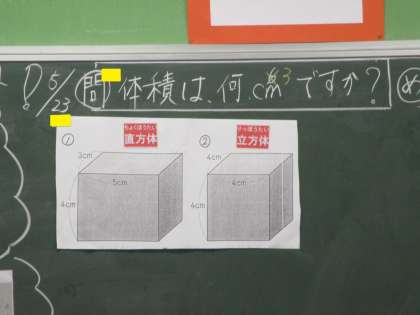 5/23 問 体積は、何cm³ですか?
め
① ちょくほうたい 直方体
3cm
5cm
4cm
② りっぽうたい 立方体
4cm
4cm
4cm